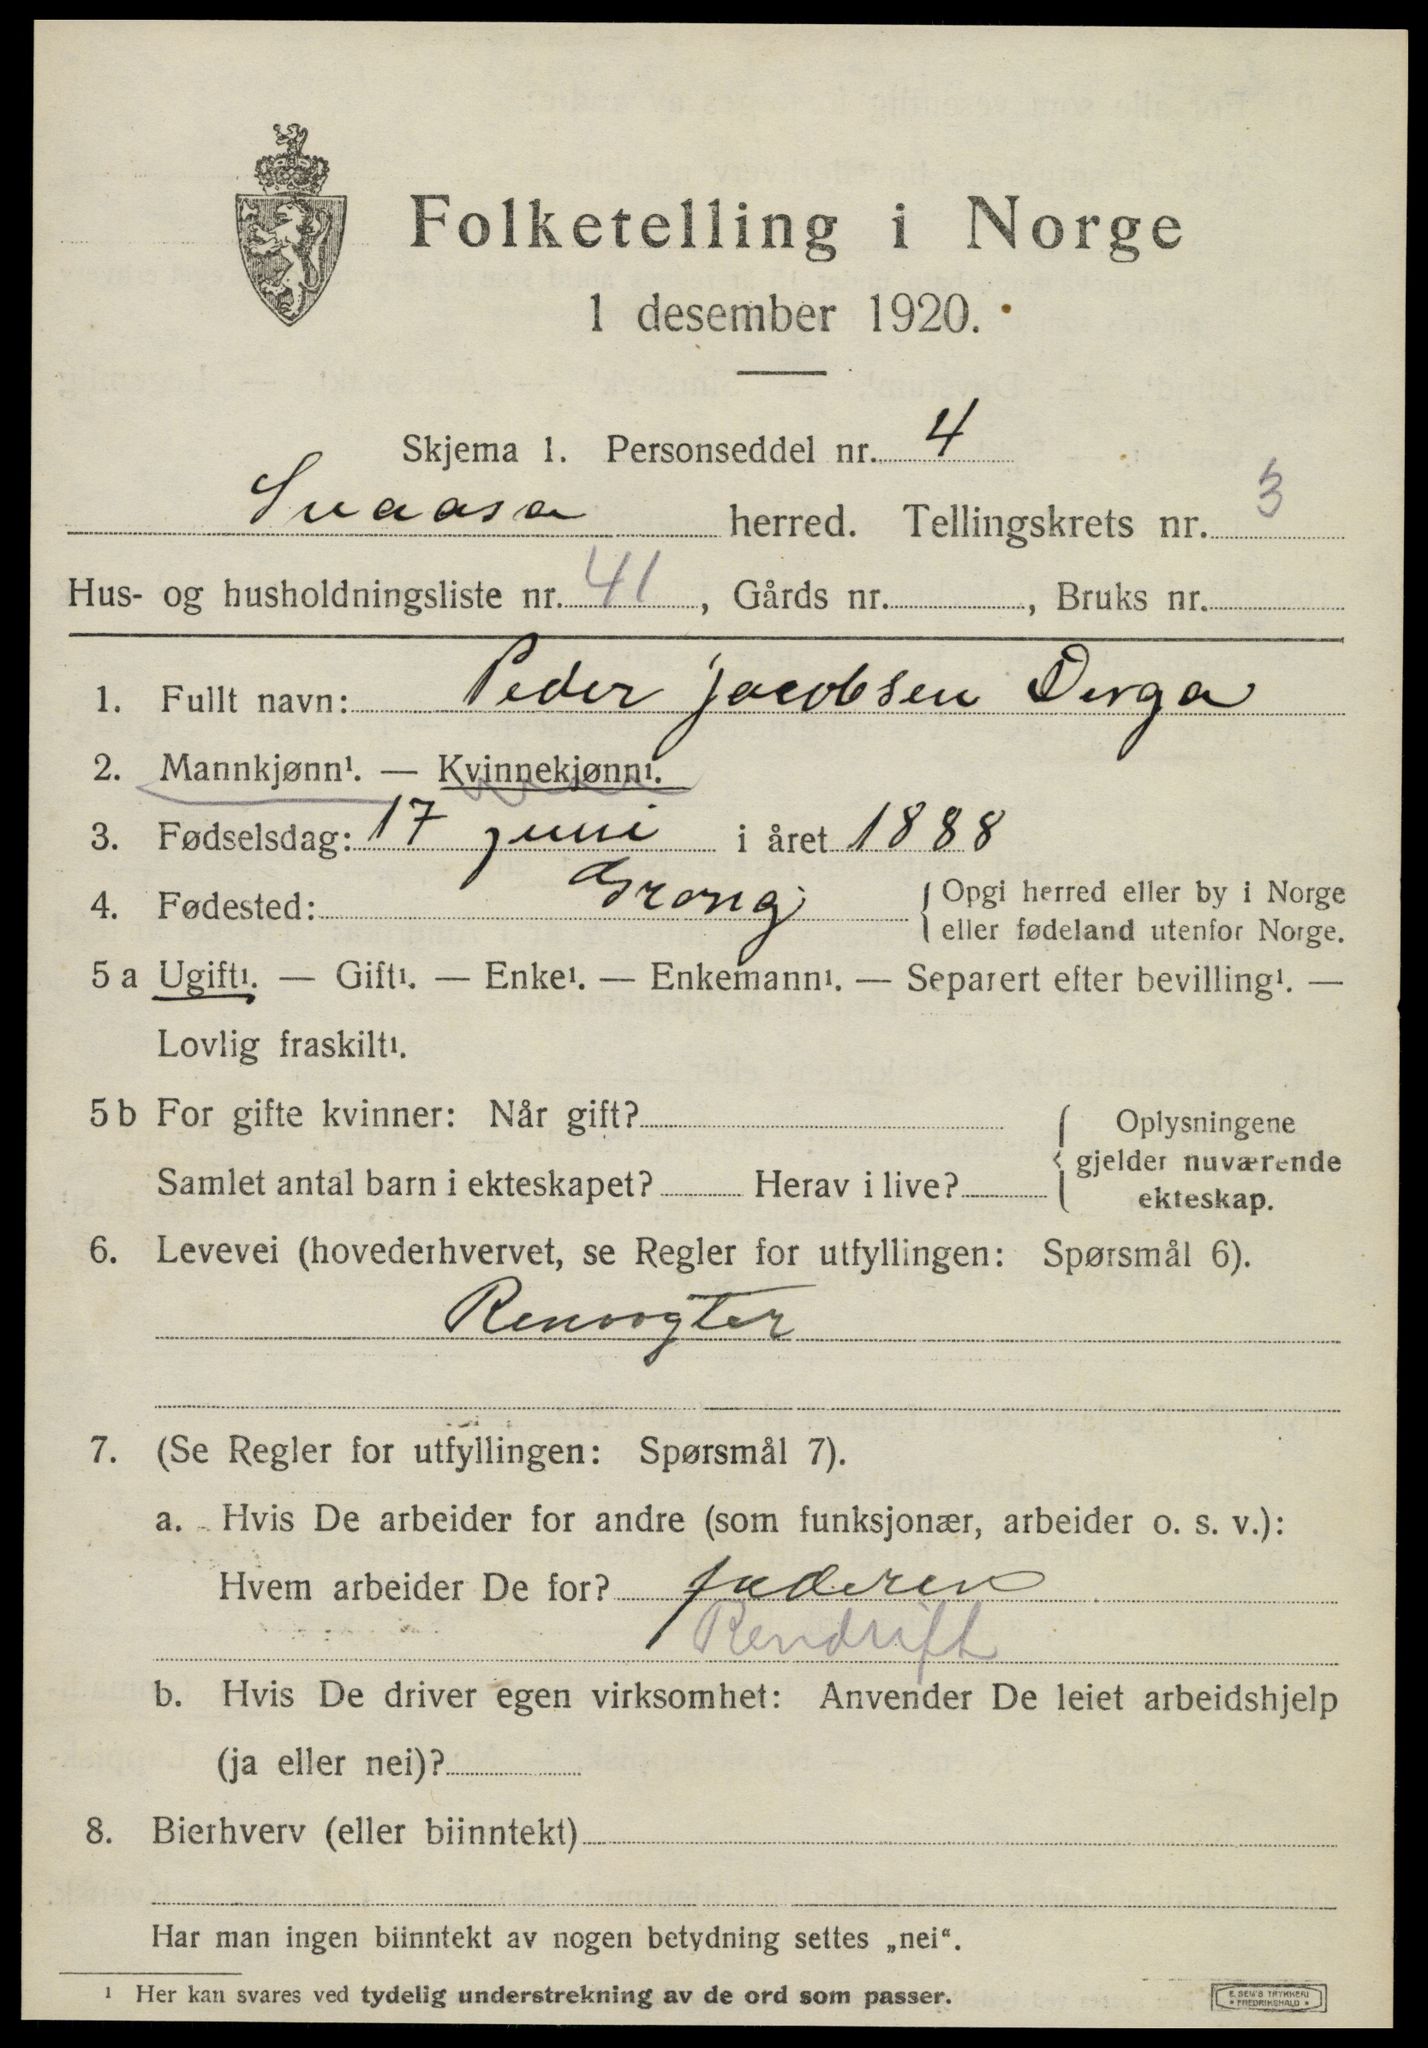 Folketelling i Norge
1 desember 1920.
Skjema 1. Personseddel nr. 4
Snaasa herred. Tellingskrets nr. 3
Hus- og husholdningsliste nr. 41, Gårds nr. , Bruks nr.
1. Fullt navn: Peder Jacobsen Derga
2. Mannkjønn¹. — Kvinnekjønn¹.
3. Fødselsdag: 17 juni i året 1888
4. Fødested: Grong { Opgi herred eller by i Norge
eller fødeland utenfor Norge.
5 a Ugift¹. — Gift¹. — Enke¹. — Enkemann¹. — Separert efter bevilling¹. —
Lovlig fraskilt¹.
5 b For gifte kvinner: Når gift? { Oplysningene
gjelder nuværende
Samlet antal barn i ekteskapet? Herav i live? ekteskap.
6. Levevei (hovederhvervet, se Regler for utfyllingen: Spørsmål 6).
Renvogter
7. (Se Regler for utfyllingen: Spørsmål 7).
a. Hvis De arbeider for andre (som funksjonær, arbeider o. s. v.):
Hvem arbeider De for? faderen
Rendrift
b. Hvis De driver egen virksomhet: Anvender De leiet arbeidshjelp
(ja eller nei)?
8. Bierhverv (eller biinntekt)
Har man ingen biinntekt av nogen betydning settes „nei“.
¹ Her kan svares ved tydelig understrekning av de ord som passer.
E. SEM'S TRYKKERI
* FREDRIKSHALD *